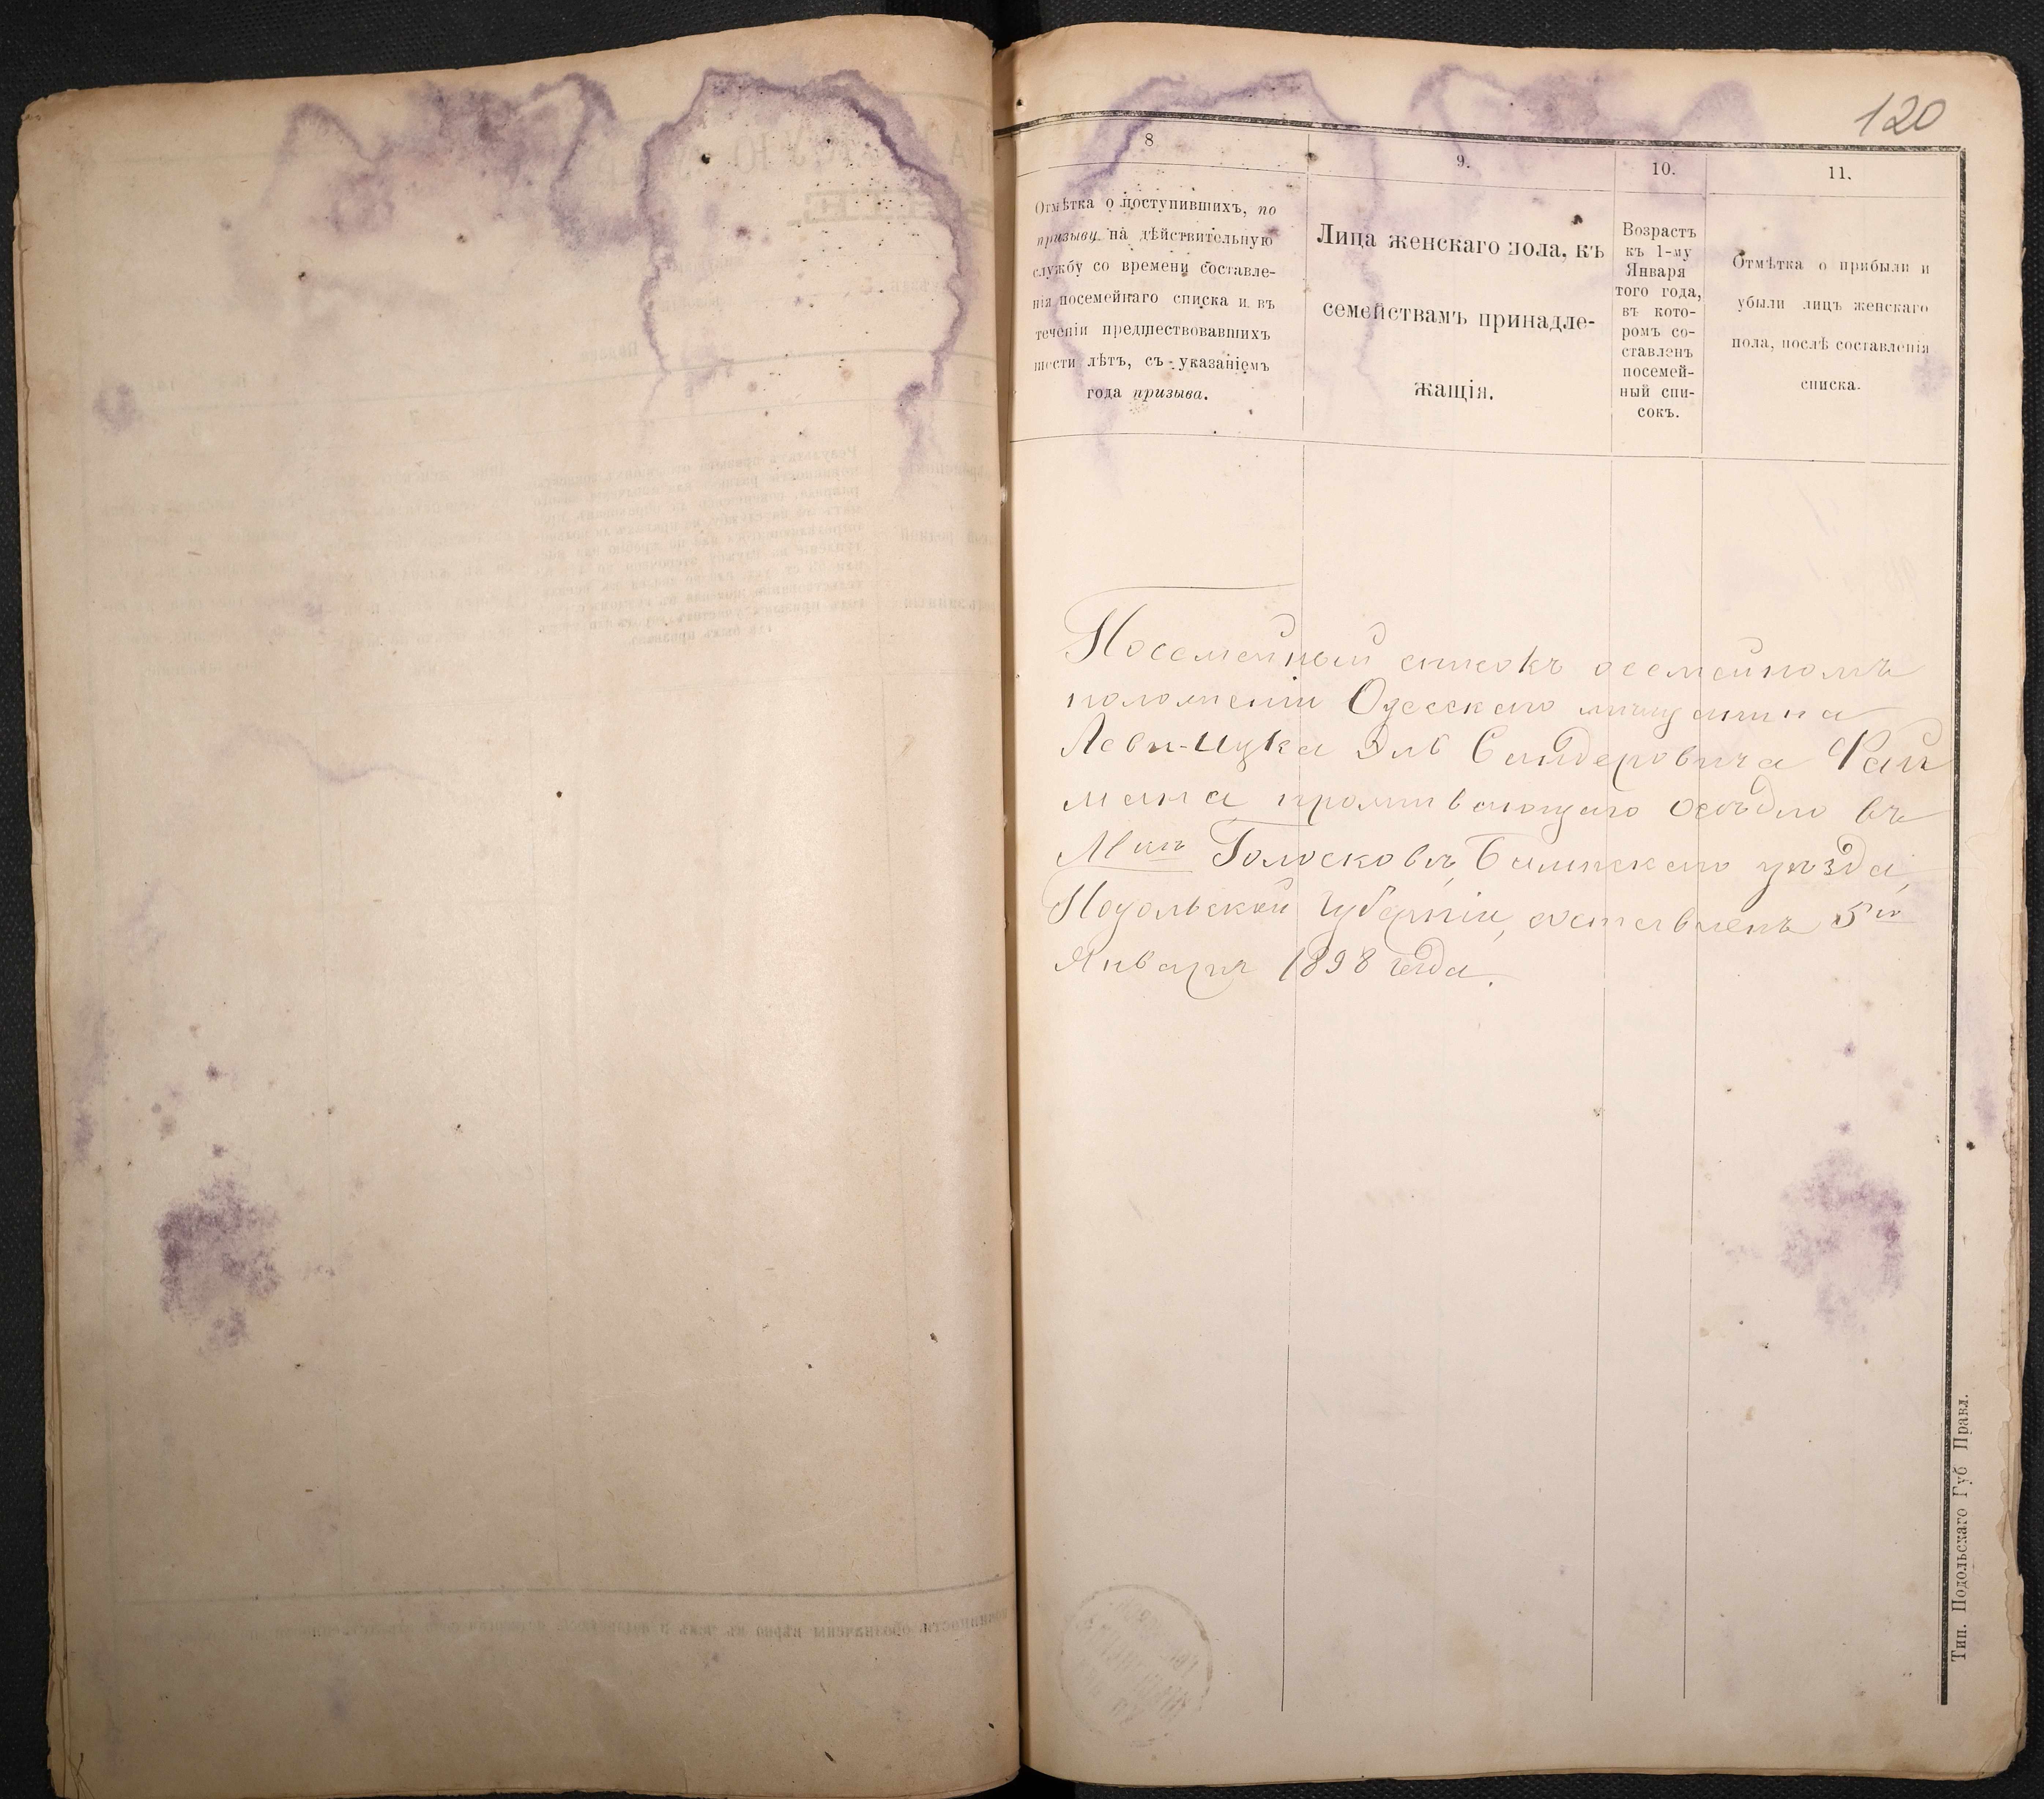 120
8
Отмѣтка о поступившихъ, по
призыву на дѣйствительную
службу со времени составле-
нія посемейнаго списка и въ
теченіи предшествовавшихъ
шести лѣтъ, съ указаніемъ
года призыва.
9.
Лица женскаго пола, къ
семействамъ принадле-
жащія.
10.
Возрастъ
къ 1-му
Января
того года,
въ кото-
ромъ со-
ставленъ
посемей-
ный спи-
сокъ.
11.
Отмѣтка о прибыли и
убыли лицъ женскаго
пола, послѣ составленія
списка.
Посемейный списокъ о семейномъ
положеніи Одесскаго мѣщанина
Леви-Ицка Эля Сындеровича Рай
мана проживающаго осѣдло въ
Мѣст Голосковѣ, Балтскаго уѣзда,
Подольской Губерніи, составленъ 5го
Января 1898 года.
Тип. Подольскаго Губ Правл.